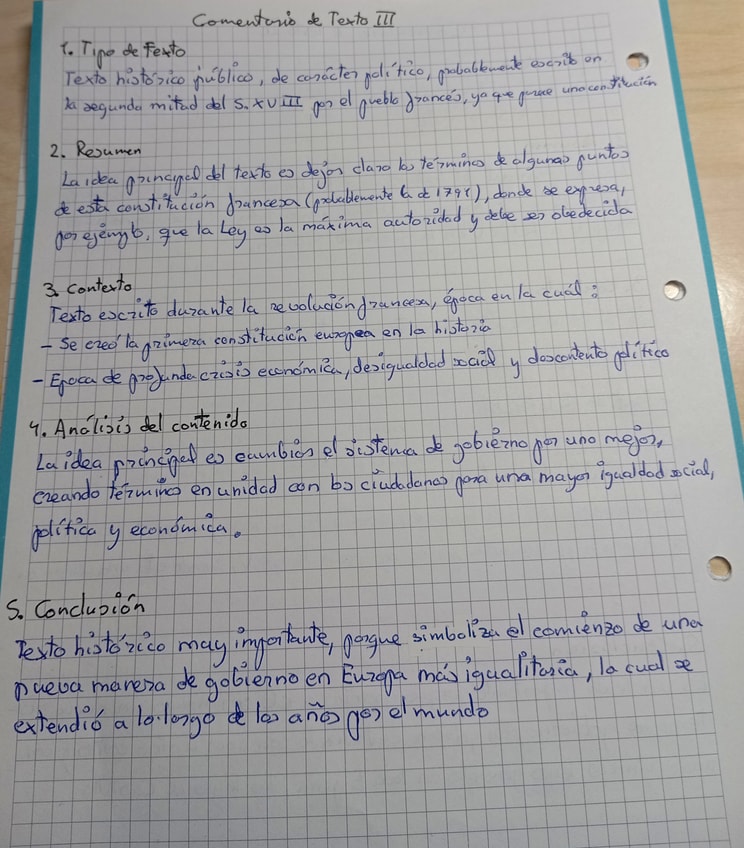 Comentario de Texto III
1. Tipo de Texto
Texto histórico público, de carácter político, probablemente escrito en
la segunda mitad del S. XVIII por el pueblo francés, ya que parece una constitución
2. Resumen
La idea principal del texto es dejar claro los términos de algunos puntos
de esta constitución francesa (probablemente la de 1791), donde se expresa,
por ejemplo, que la Ley es la máxima autoridad y debe ser obedecida
3. Contexto
Texto escrito durante la revolución francesa, época en la cuál:
- Se creó la primera constitución europea en la historia
- Epoca de profunda crisis económica, desigualdad social y descontento político
4. Análisis del contenido
La idea principal es cambiar el sistema de gobierno por uno mejor,
creando términos en unidad con los ciudadanos para una mayor igualdad social,
política y económica.
5. Conclusión
Texto histórico muy importante, porque simboliza el comienzo de una
nueva manera de gobierno en Europa más igualitaria, la cual se
extendió a lo largo de los años por el mundo